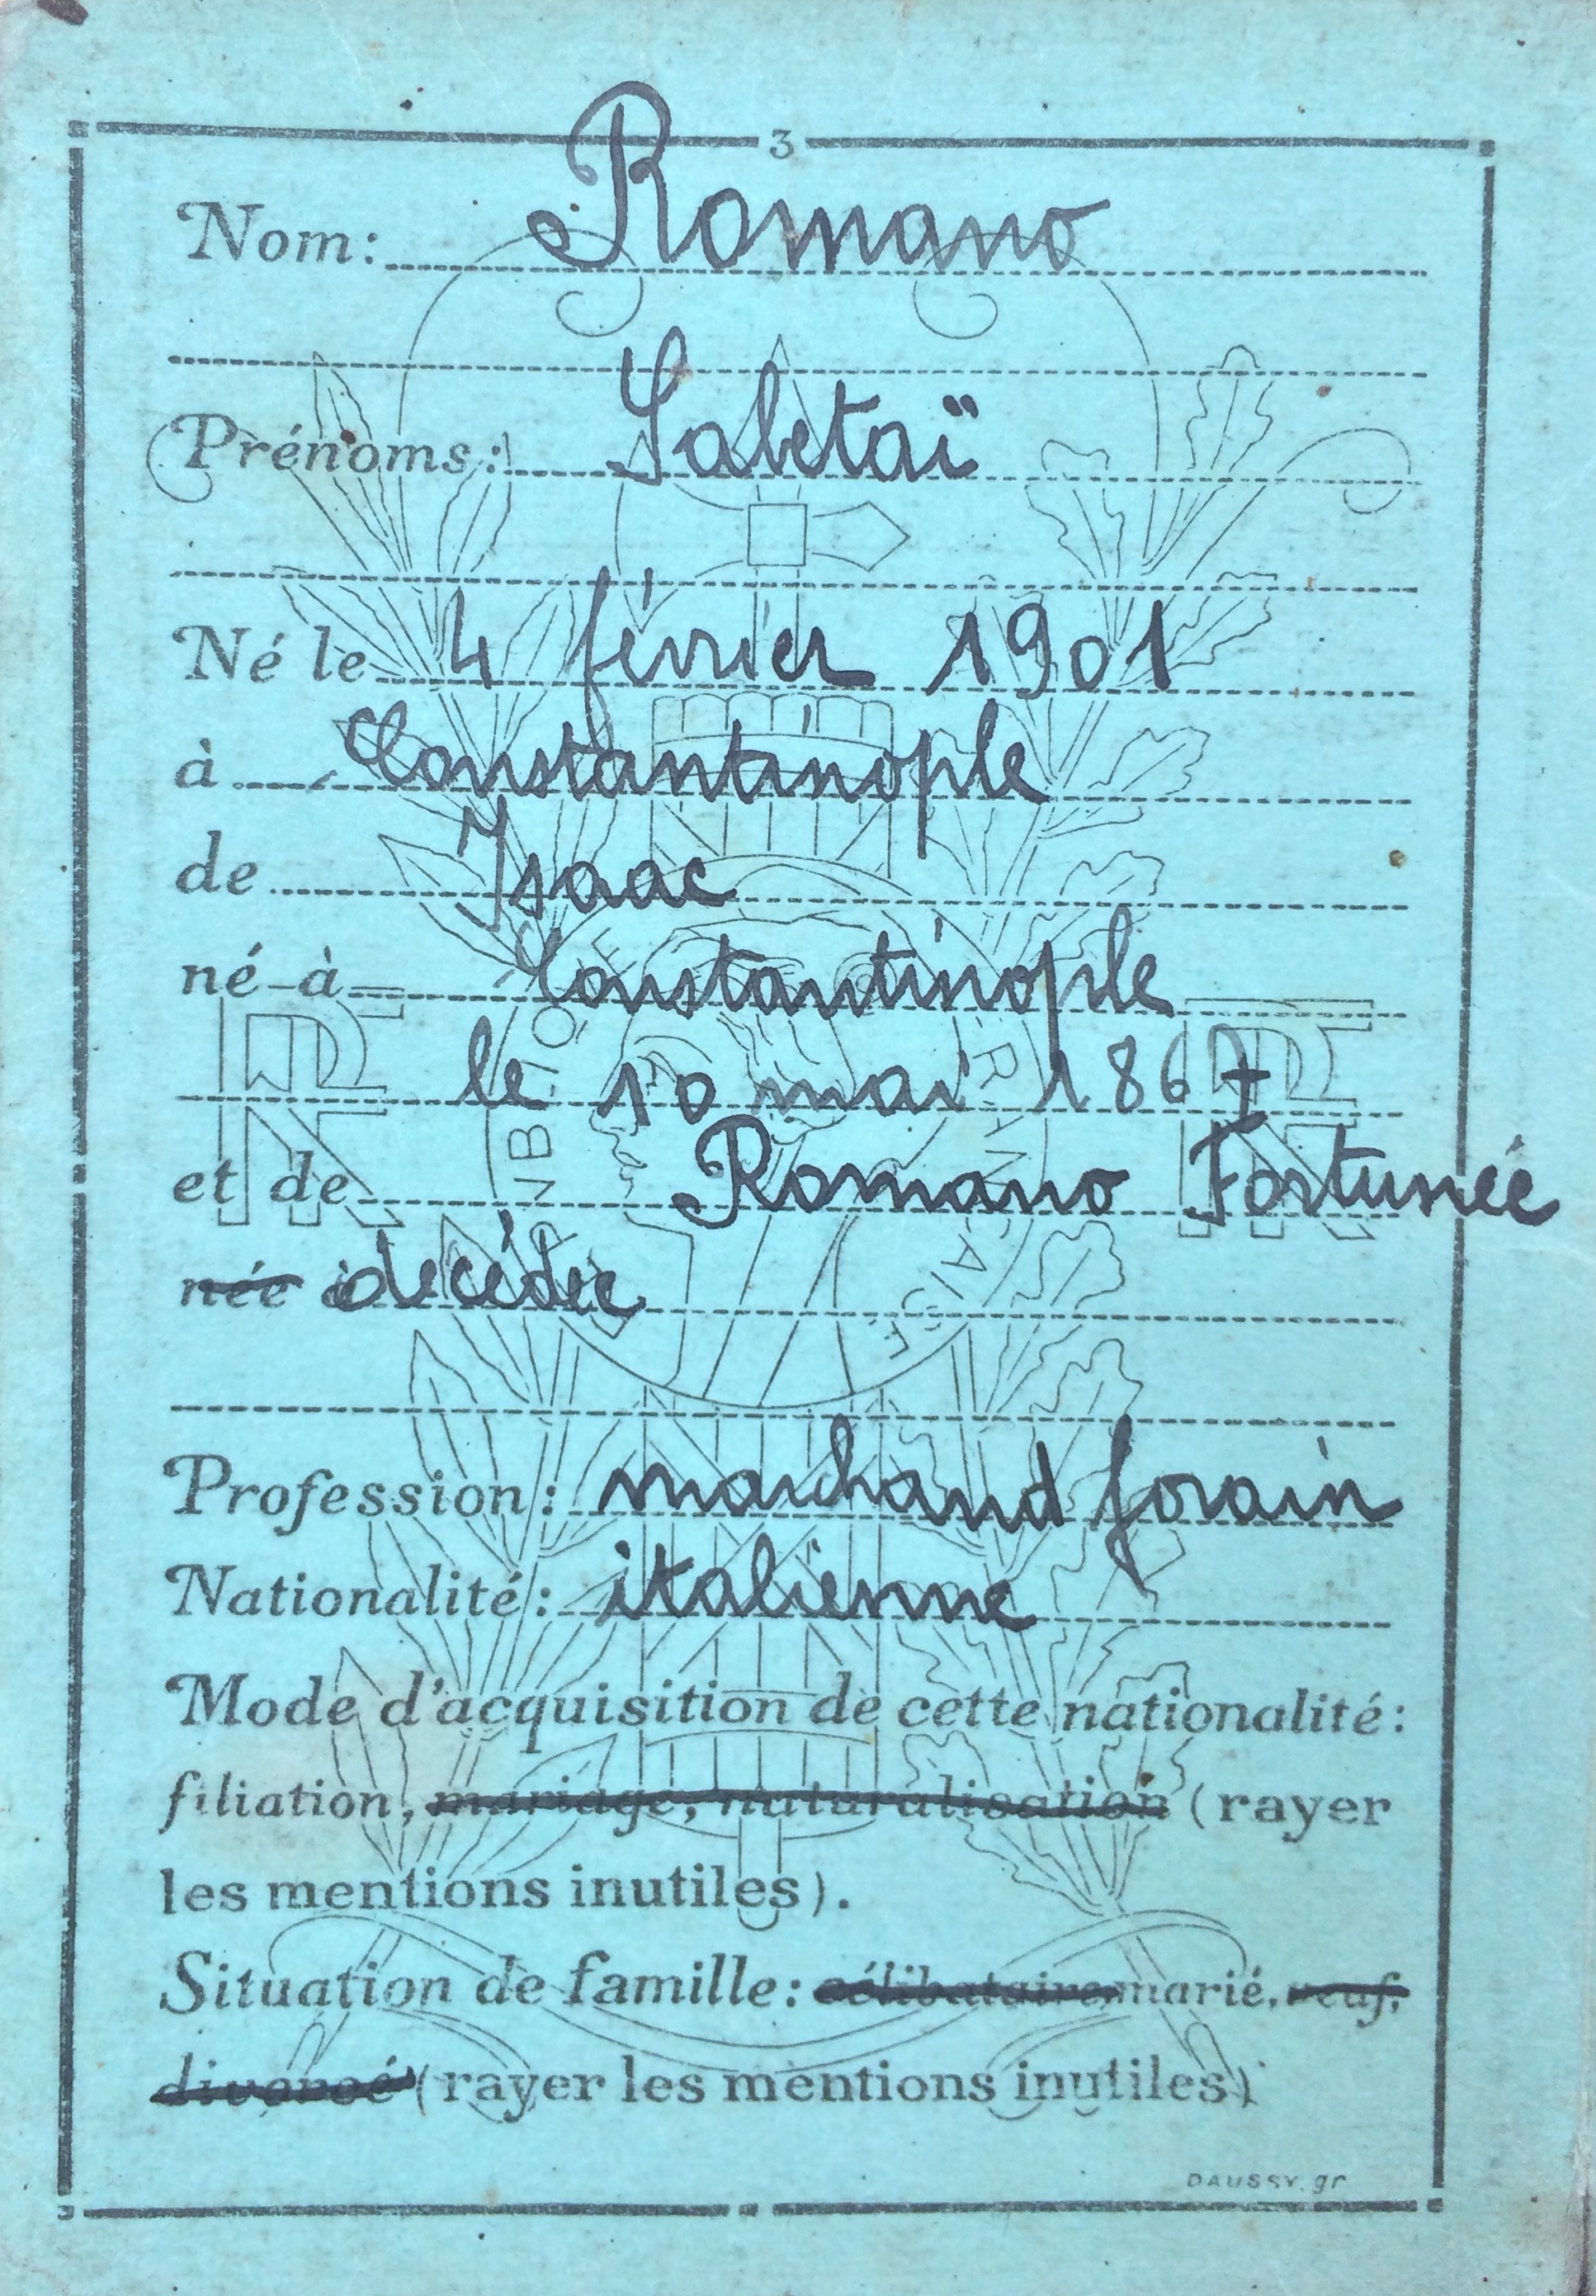 3
Nom: Romano
Prénoms: Sabetaï
Né le 4 février 1901
à Constantinople
de Isaac
né à Constantinople
le 10 mai 1867
et de Romano Fortunée
née à decédée
Profession: marchand forain
Nationalité: italienne
Mode d'acquisition de cette nationalité:
filiation, mariage, naturalisation (rayer
les mentions inutiles).
Situation de famille: célibataire, marié, veuf,
divorcé (rayer les mentions inutiles)
DAUSSY. gr
RÉPUBLIQUE FRANÇAISE
RF
RF